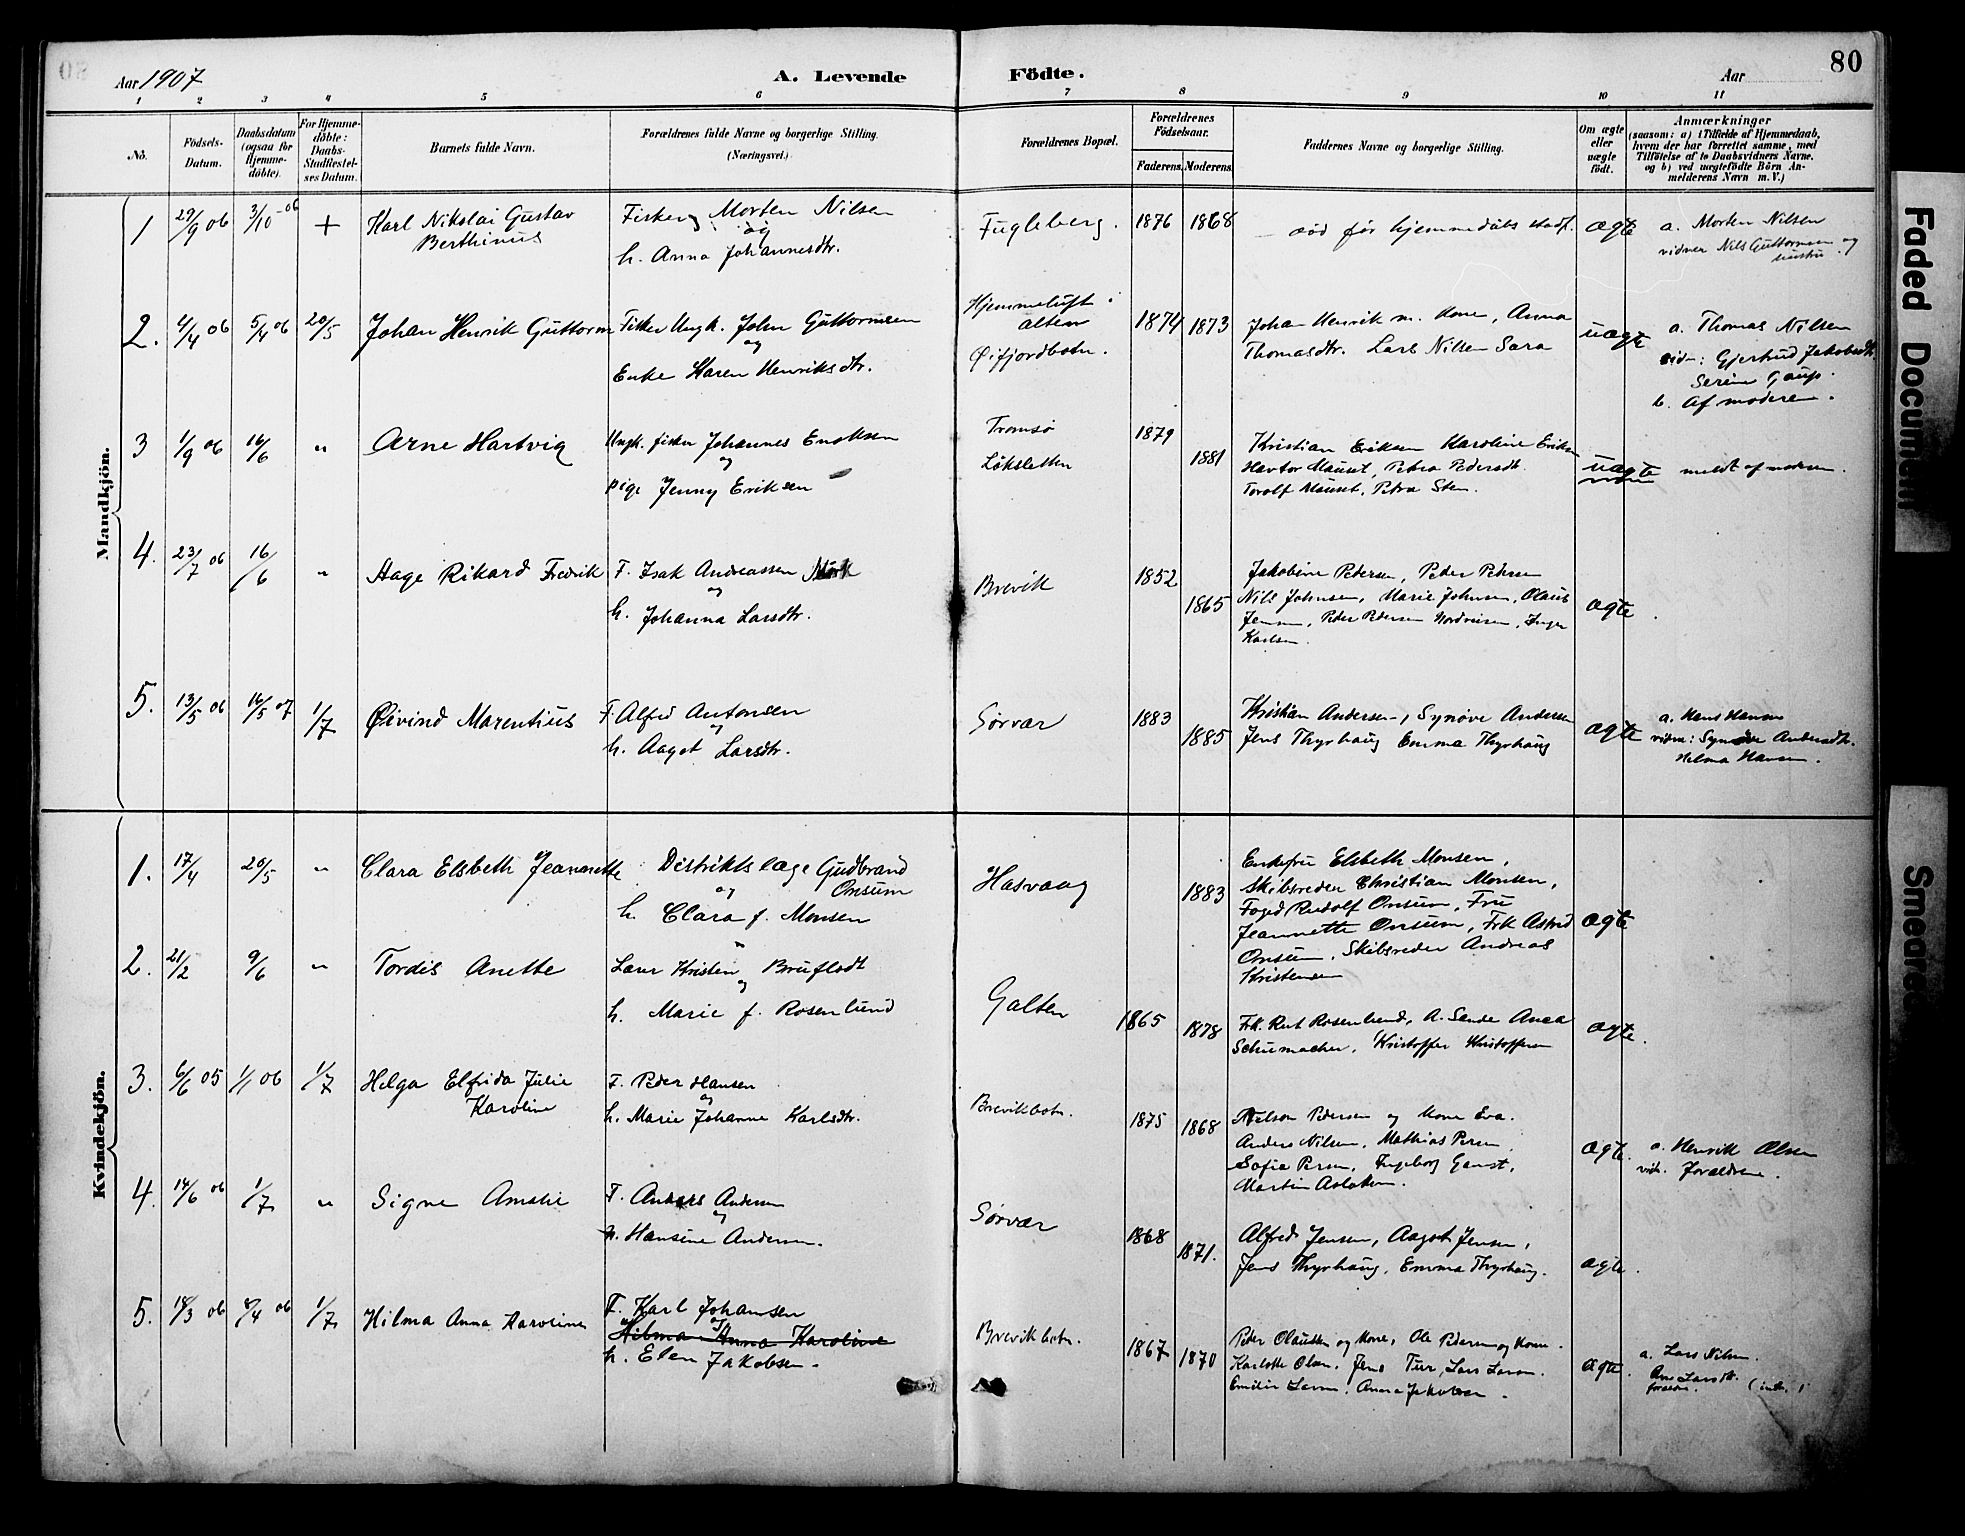 80
Aar 1907
A. Levende
Födte.
Aar
1 2 3 4 5 6 7 8 9 10 11
No.
Födsels-Datum.
Daabsdatum (ogsaa for Hjemme-döbte).
For Hjemme-döbte: Daabs-Stadfæstel-ses Datum.
Barnets fulde Navn.
Forældrenes fulde Navne og borgerlige Stilling.
(Næringsvei.)
Forældrenes Bopæl.
Forældrenes Födselsaar.
Faderens.
Moderens.
Faddernes Navne og borgerlige Stilling.
Om ægte eller uægte födt.
Anmærkninger
(saasom: a) i Tilfælde af Hjemmedaab,
hvem der har forrettet samme, med
Tilföielse af to Daabsvidners Navne,
og b) ved uægtefödte Börn An-
melderens Navn m. V.)
Mandkjön.
1 29/9 06 3/10-06 + Karl Nikolai Gustav
Berthinus
Fisker Morten Nilsen
og
h. Anna Johannesdtr.
Fugleberg. 1876 1868
død før hjemmedåbs stadf. ægte
a. Morten Nilsen
vidner Nils Guttormsen og
hustru
2. 4/4 06 5/4 06 20/5 Johan Henrik Guttorm
Fisker Ungk. John Guttormsen
og
Enke Karen Henriksdtr.
Hjemmeluft i
alten
Øifjordbotn.
1874 1873
Johan Henrik m. Kone, Anna
Thomasdtr. Lars Nilsen Sara
uægte
a. Thomas Nilsen
vidn: Gjertrud Jakobsdtr.
Serine Gaup.
b. Af moderen.
3 1/9 06 16/6 " Arne Hartvig
Ungk. fisker Johannes Enoksen
og
pige Jenny Eriksen
Tromsø
Løksletten
1879
1881
Kristian Eriksen Karoline Eriksen
Mauset, Petra Pedersdt.
Torolf Mauset, Petra Sten.
uægte
meldt af moderen.
4. 23/7 06 16/6 " Aage Rikard Fredrik
F. Isak Andreassen Mörk
og
h. Johanna Larsdtr.
Brevik 1852
1865
Jakobine Pedersen, Peder Pedersen
Nils Johnsen, Marie Johnsen, Olaus
Jensen, Peder Pedersen, Inger
Karlsen.
ægte.
5. 13/5 06 16/5 07 1/7 Øivind Marentius
F. Alfred Antonsen
og
h. Aagot Larsdtr.
Sørvær 1883
1885
Kristian Andersen, Synøve Andersen
Jens Thyrhaug Emma Thyrhaug
ægte
a. Hans Hansen
vidn: Synøve Andersdtr.
Helma Hansen.
Kvindekjön.
1. 17/4 20/5 " Clara Elsbeth Jeannette
Distriktslæge Gudbrand
og Onsum
h. Clara f. Monsen
Hasvaag 1883
Enkefru Elsbeth Monsen,
Skibsreder Christian Monsen,
Foged Rudolf Onsum, Fru
Jeannette Onsum, Frk Astrid
Onsum, Skibsreder Andreas
Kristensen
ægte
2. 21/2 9/6 " Tordis Anette
Lærer Kristen Bruflodt
og
h. Marie f. Rosenlund
Galten 1865 1878
Frk. Rut Rosenlund, A. Sande Anea
Schumacher, Kristoffer Kristoffersen
ægte.
3. 6/6 05 1/1 06 1/7 Helga Elfrida Julie
Karoline
F. Peder Hansen
og
h. Marie Johanne Karlsdtr.
Brevikbotn. 1875 1868
Nelson Pedersen og Kone Eva.
Anders Nilsen, Mathias Persen
Sofie Persen, Ingeborg Gamst,
Martin Aslaksen.
ægte.
a. Henrik Olsen
vidn. forældrene.
4. 14/6 06 1/7 " Signe Amalie
F. Anders Andersen
og
h. Hansine Andersen.
Sørvær 1868
1871.
Alfred Jensen, Aagot Jensen,
Jens Thyrhaug, Emma Thyrhaug.
ægte.
5. 18/3 06 8/4 06 1/7 Hilma Anna Karoline
F. Karl Johansen
og
Hilma Anna Karoline
h. Elen Jakobsen.
Brevikbotn. 1867 1870
Peder Olaussen og Kone, Ole Pedersen og Kone.
Karlotte Olsen, Jens Tur, Lars Larsen.
Emilie Larsen, Anna Jakobsen.
ægte.
a. Lars Nilsen.
Ane Larsdtr.
Faded Document
Smeared